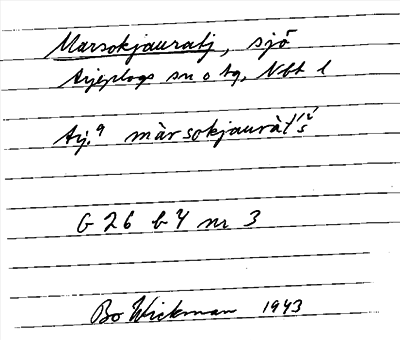 Marsokjauratj, sjö
Arjeplogs sn o tg, Nbt l
Arj.9 màrsokjauràt's'
G 26 b 4 nr 3
Bo Wickman 1943